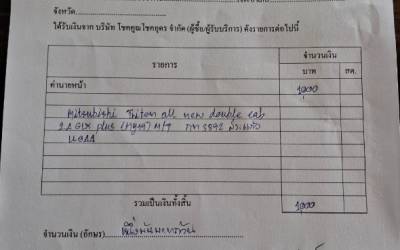 จังหวัด
ได้รับเงินจาก บริษัท โชคคูณโชคยุคร จำกัด (ผู้ซื้อ/ผู้รับบริการ) ดังรายการต่อไปนี้
รายการ จำนวนเงิน
บาท สต.
ค่านายหน้า 1,000
Mitsubishi Triton all new double cab
2.4 GLX plus M/T
รวมเป็นเงินทั้งสิ้น 1,000
จำนวนเงิน (อักษร) หนึ่งพันบาทถ้วน